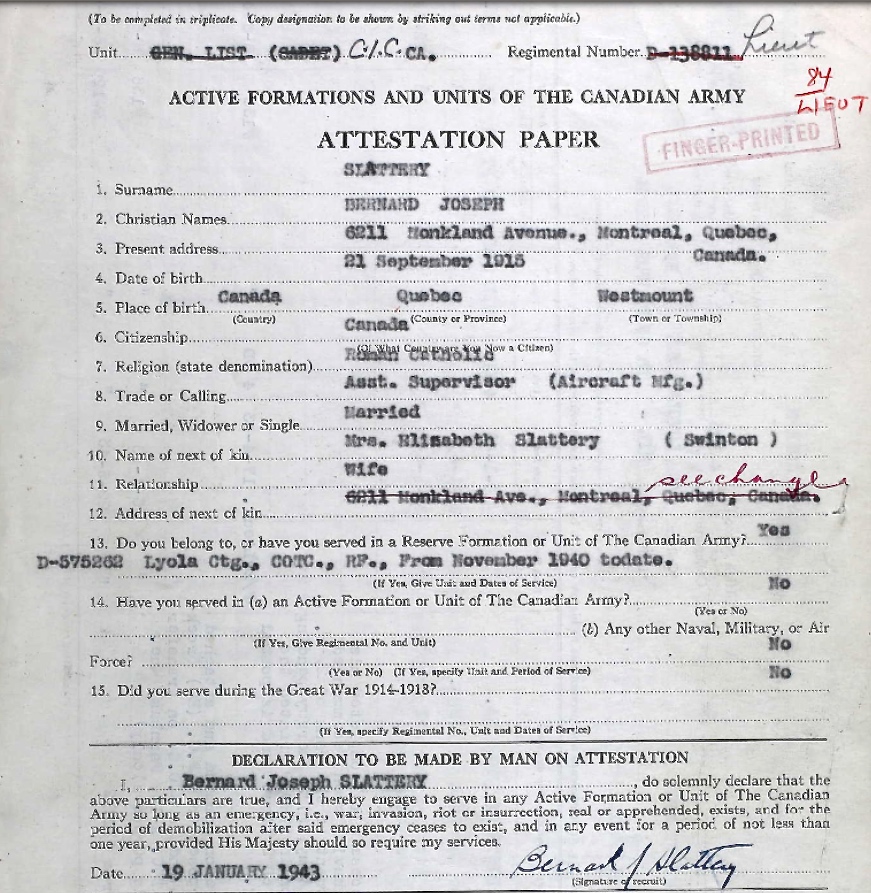 (To be completed in triplicate. Copy designation to be shown by striking out terms not applicable.)
Unit GEN. LIST (CADET) C.I.C. CA. Regimental Number D-138811 Lieut
84
LIEUT
ACTIVE FORMATIONS AND UNITS OF THE CANADIAN ARMY
ATTESTATION PAPER
FINGER-PRINTED
SLATTERY
1. Surname
BERNARD JOSEPH
2. Christian Names
6211 Monkland Avenue., Montreal, Quebec,
3. Present address Canada.
21 September 1915
4. Date of birth
5. Place of birth Canada Quebec Westmount
(Country) (County or Province) (Town or Township)
Canada
6. Citizenship
(Of What Country are You Now a Citizen)
Roman Catholic
7. Religion (state denomination)
Asst. Supervisor (Aircraft Mfg.)
8. Trade or Calling
Married
9. Married, Widower or Single
Mrs. Elisabeth Slattery ( Swinton )
10. Name of next of kin
Wife
11. Relationship see change
6211 Monkland Ave., Montreal, Quebec, Canada.
12. Address of next of kin
13. Do you belong to, or have you served in a Reserve Formation or Unit of The Canadian Army? Yes
D-575262 Lyola Ctg., COTC., RF., From November 1940 todate.
(If Yes, Give Unit and Dates of Service)
No
14. Have you served in (a) an Active Formation or Unit of The Canadian Army?
(Yes or No)
(b) Any other Naval, Military, or Air
(If Yes, Give Regimental No. and Unit)
No
Force?
(Yes or No) (If Yes, specify Unit and Period of Service)
No
15. Did you serve during the Great War 1914-1918?
(If Yes, specify Regimental No., Unit and Dates of Service)
DECLARATION TO BE MADE BY MAN ON ATTESTATION
I, Bernard Joseph SLATTERY, do solemnly declare that the
above particulars are true, and I hereby engage to serve in any Active Formation or Unit of The Canadian
Army so long as an emergency, i.e., war, invasion, riot or insurrection, real or apprehended, exists, and for the
period of demobilization after said emergency ceases to exist, and in any event for a period of not less than
one year, provided His Majesty should so require my services.
Date 19 JANUARY 1943 Bernard J Slattery
(Signature of recruit)